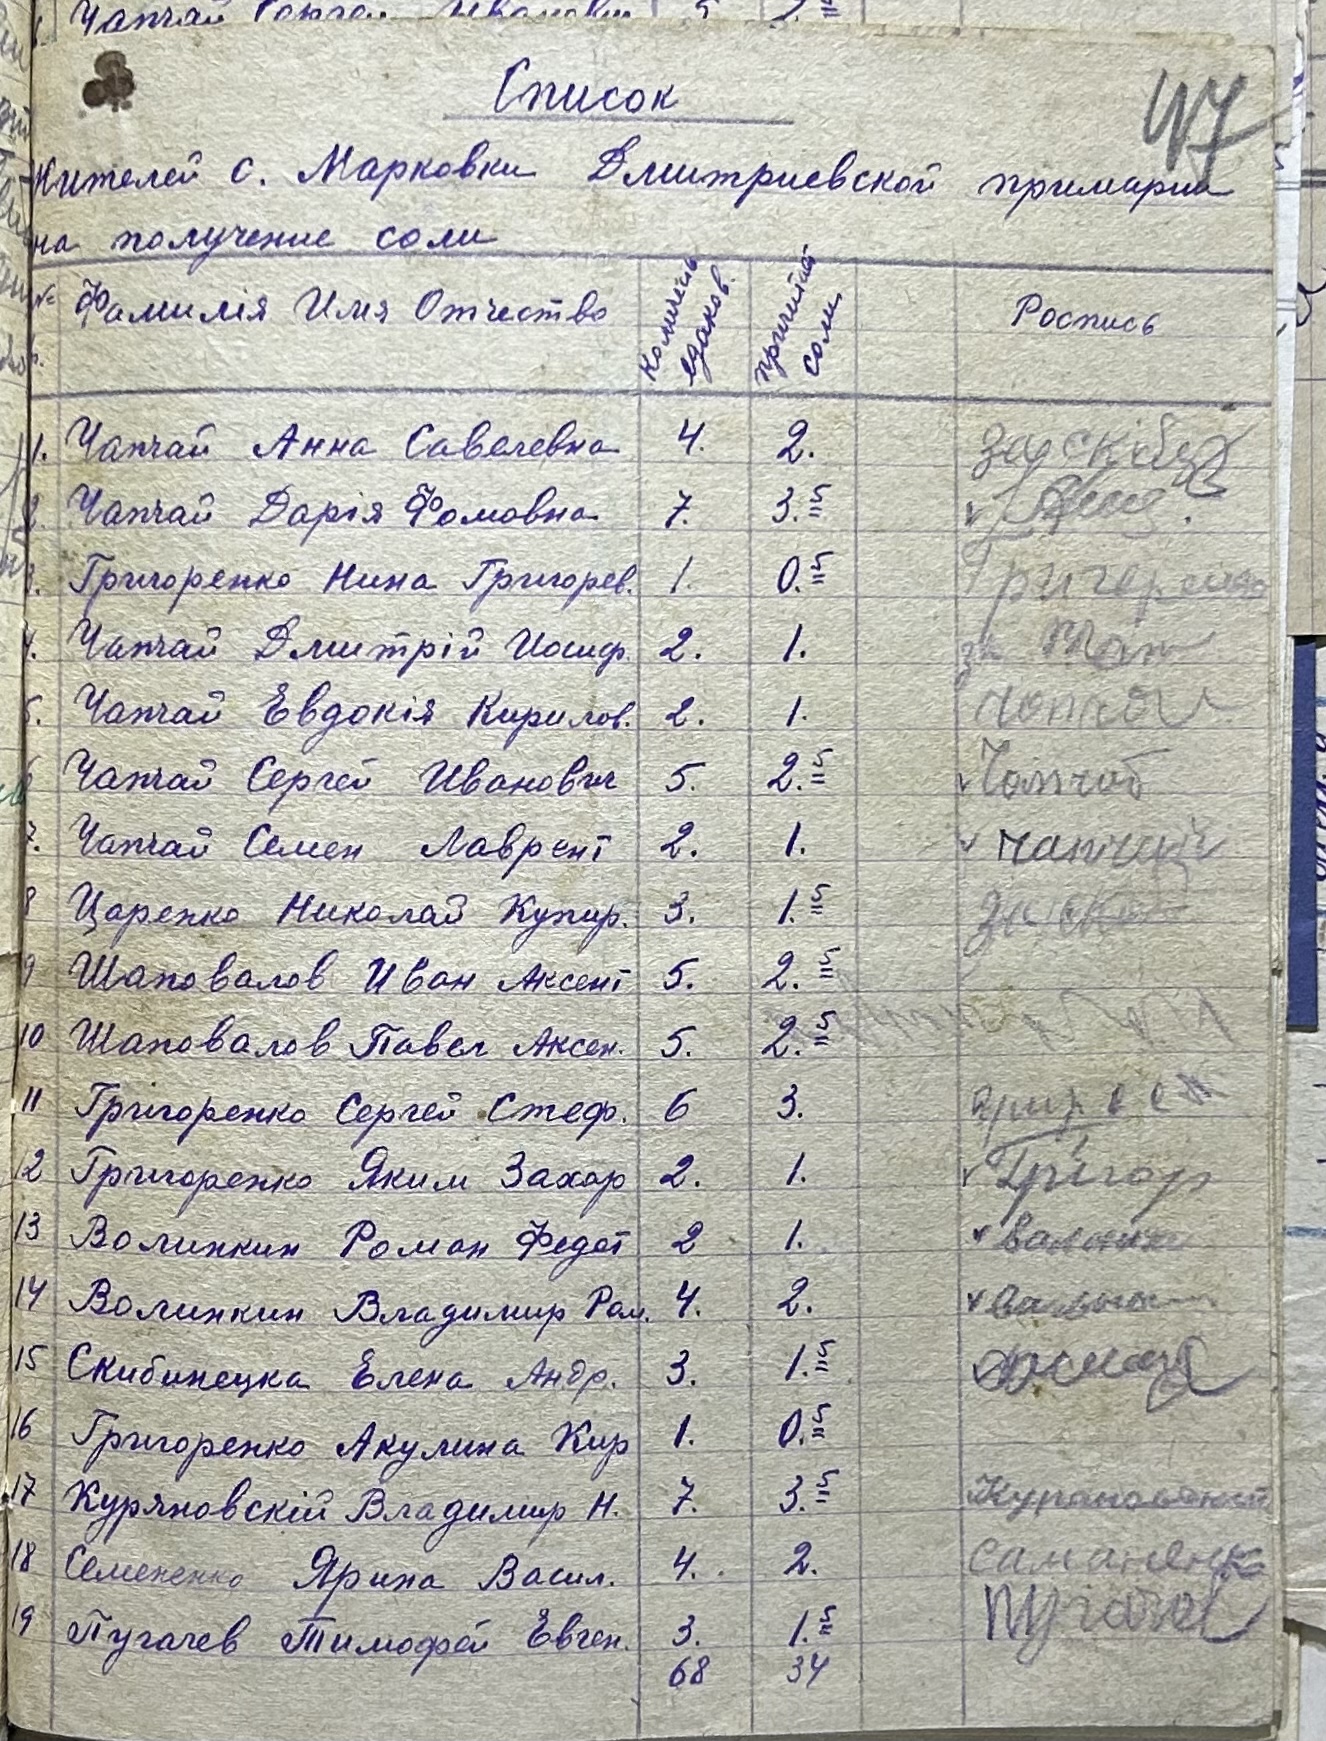 47
Список
Жителей с. Марковки Дмитриевской примарии
на получение соли
№ Фамилія Имя Отчество количест. едаков. причитает соли Роспись
1. Чапчай Анна Савелевна 4. 2.
2. Чапчай Дарія Фомовна 7. 3.5
3. Григоренко Нина Григорев. 1. 0.5
4. Чапчай Дмитрій Иосиф. 2. 1. за Чап
5. Чапчай Евдокія Кирилов. 2. 1.
6 Чапчай Сергей Иванович 5. 2.5
7. Чапчай Семен Лаврент 2. 1. Чапчай
8 Царенко Николай Купир. 3. 1.5
9 Шаповалов Иван Аксент 5. 2.5
10 Шаповалов Павел Аксен. 5. 2.5
11 Григоренко Сергей Стеф. 6 3.
12 Григоренко Яким Захар 2. 1. Григор
13 Волинкин Роман Федот 2 1.
14 Волинкин Владимир Ром. 4. 2.
15 Скибинецка Елена Андр. 3. 1.5
16 Григоренко Акулина Кир 1. 0.5
17 Куряновскій Владимир Н. 7. 3.5
18 Семененко Ярина Васил. 4. 2. Саманенко
19 Пугачев Тимофей Евген. 3. 1.5 Пугачов
68 34